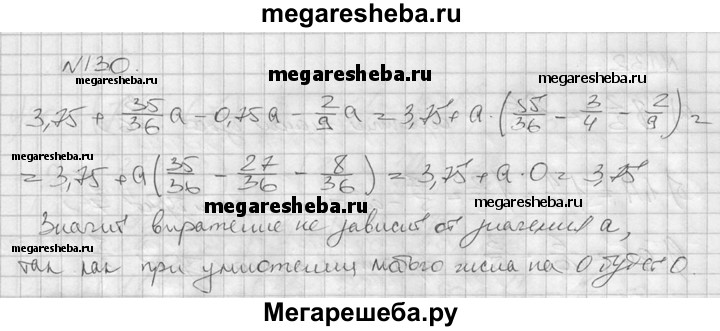 megaresheba.ru
№130.
megaresheba.ru
megaresheba.ru
megaresheba.ru
3,75 + 35/36 a - 0,75a - 2/9 a = 3,75 + a · (35/36 - 3/4 - 2/9) =
megaresheba.ru
= 3,75 + a(35/36 - 27/36 - 8/36) = 3,75 + a · 0 = 3,75
megaresheba.ru
Значит выражение не зависит от значения a,
megaresheba.ru
megaresheba.ru
так как при умножении любого числа на 0 будет 0.
Мегарешеба.ру